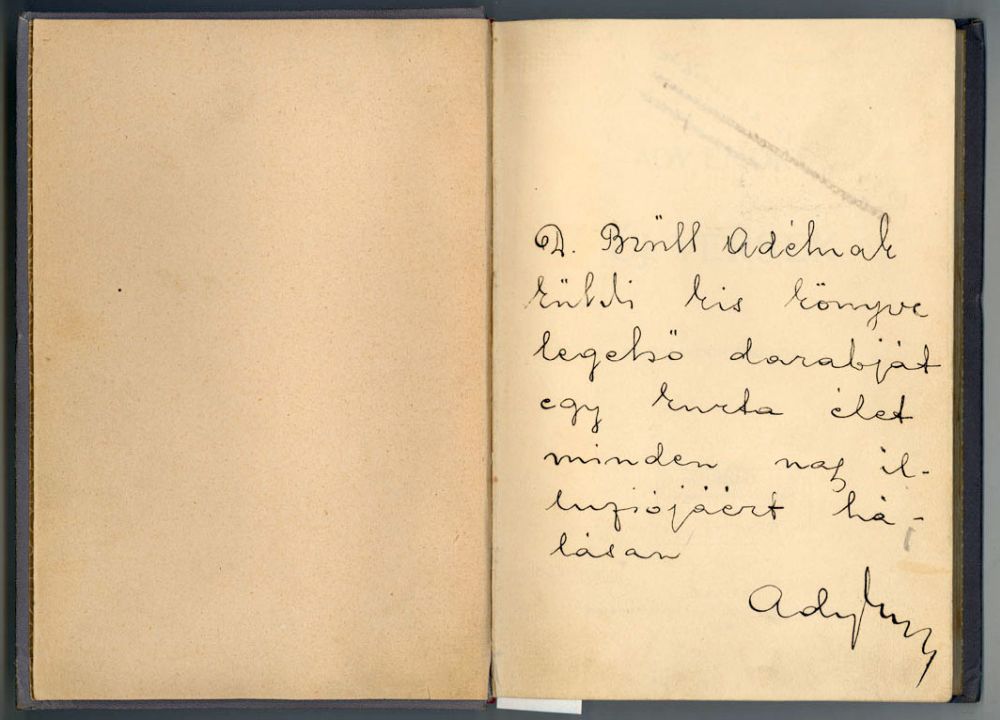 D. Brüll Adélnak
küldi kis könyve
legelső darabját
egy kurta élet
minden nagy il-
luziójáért há-
lásan
Ady Endre